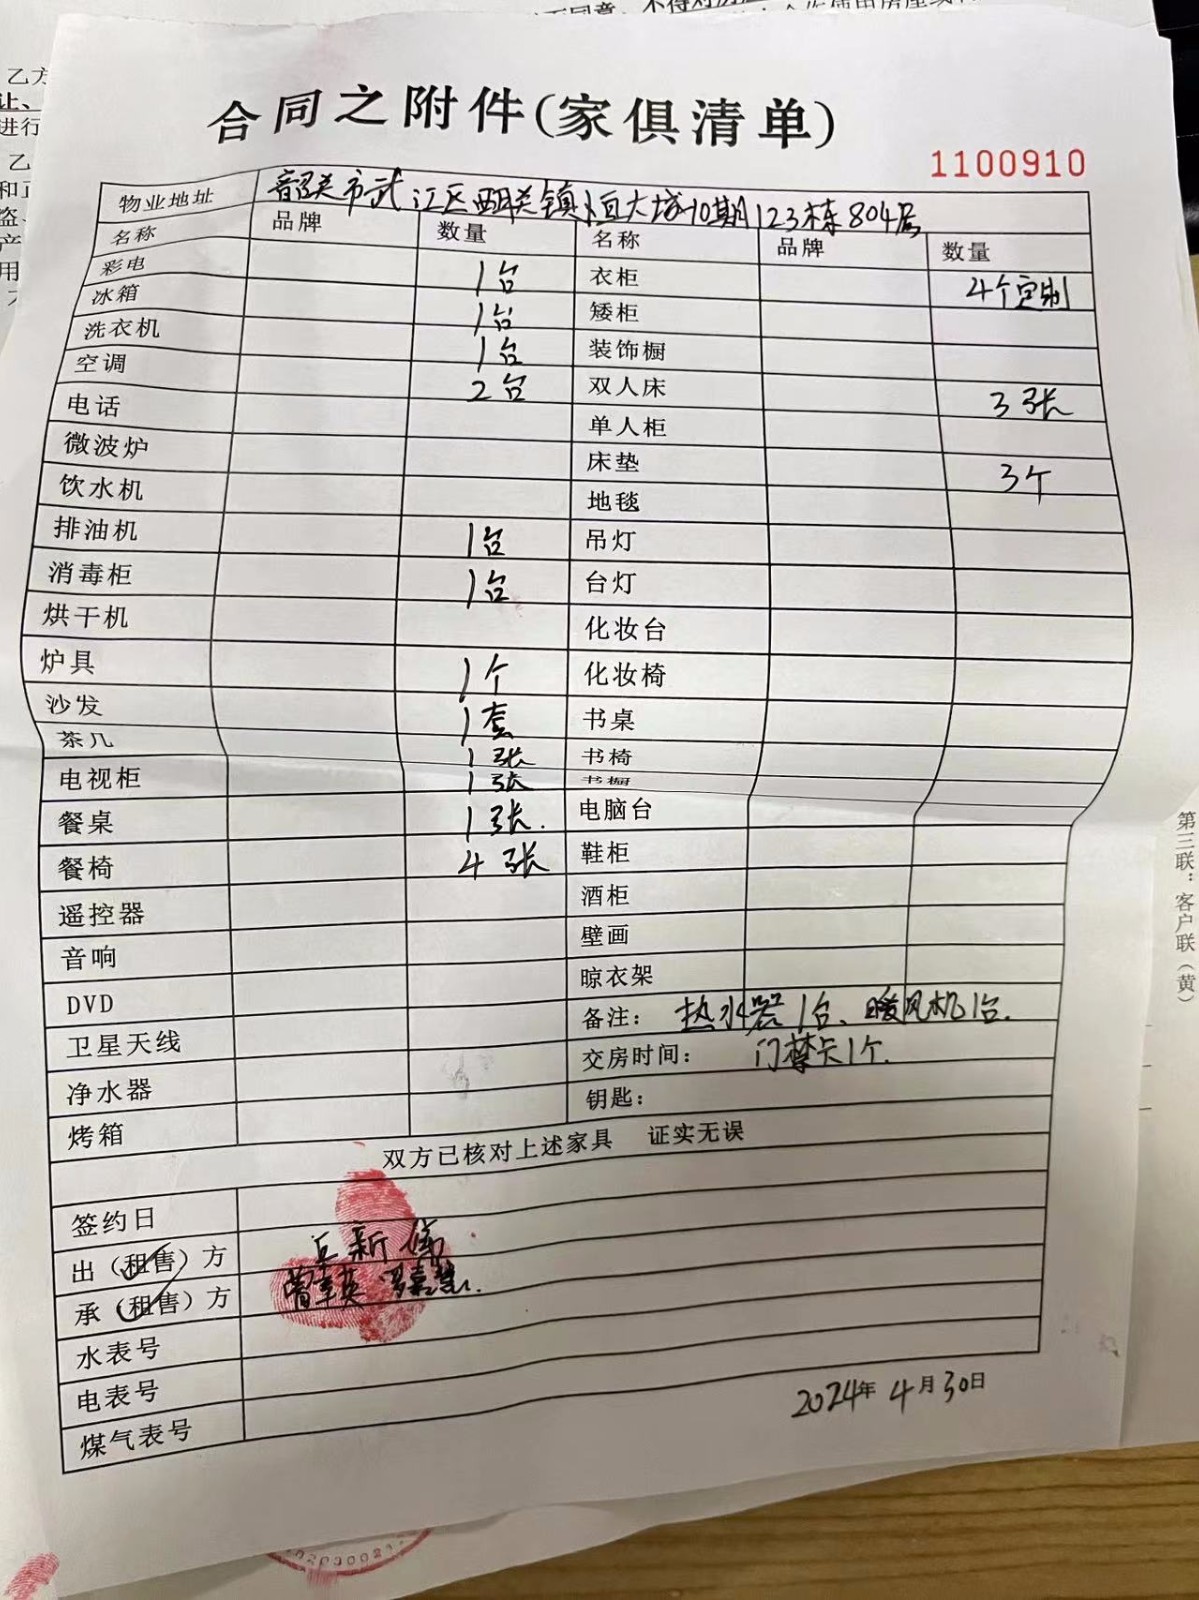 合同之附件(家俱清单)
1100910
物业地址 韶关市武江区西联镇恒大城10期123栋804房
名称 品牌 数量 名称 品牌 数量
彩电 1台 衣柜 4个定制
冰箱 1台 矮柜
洗衣机 1台 装饰橱
空调 2台 双人床 3张
电话 单人柜
微波炉 床垫 3个
饮水机 地毯
排油机 1台 吊灯
消毒柜 1台 台灯
烘干机 化妆台
炉具 1个 化妆椅
沙发 1套 书桌
茶几 1张 书椅
电视柜 1张 书橱
餐桌 1张. 电脑台
餐椅 4张 鞋柜
遥控器 酒柜
音响 壁画
DVD 晾衣架
卫星天线 备注: 热水器1台、暖风机1台.
净水器 交房时间: 门禁卡1个.
烤箱 钥匙:
双方已核对上述家具 证实无误
签约日
出(租售)方 丘新伟
承(租售)方
水表号
电表号
煤气表号
2024年4月30日
第三联:客户联(黄)
乙方
让、
进行
乙
和正
盗、
产
用